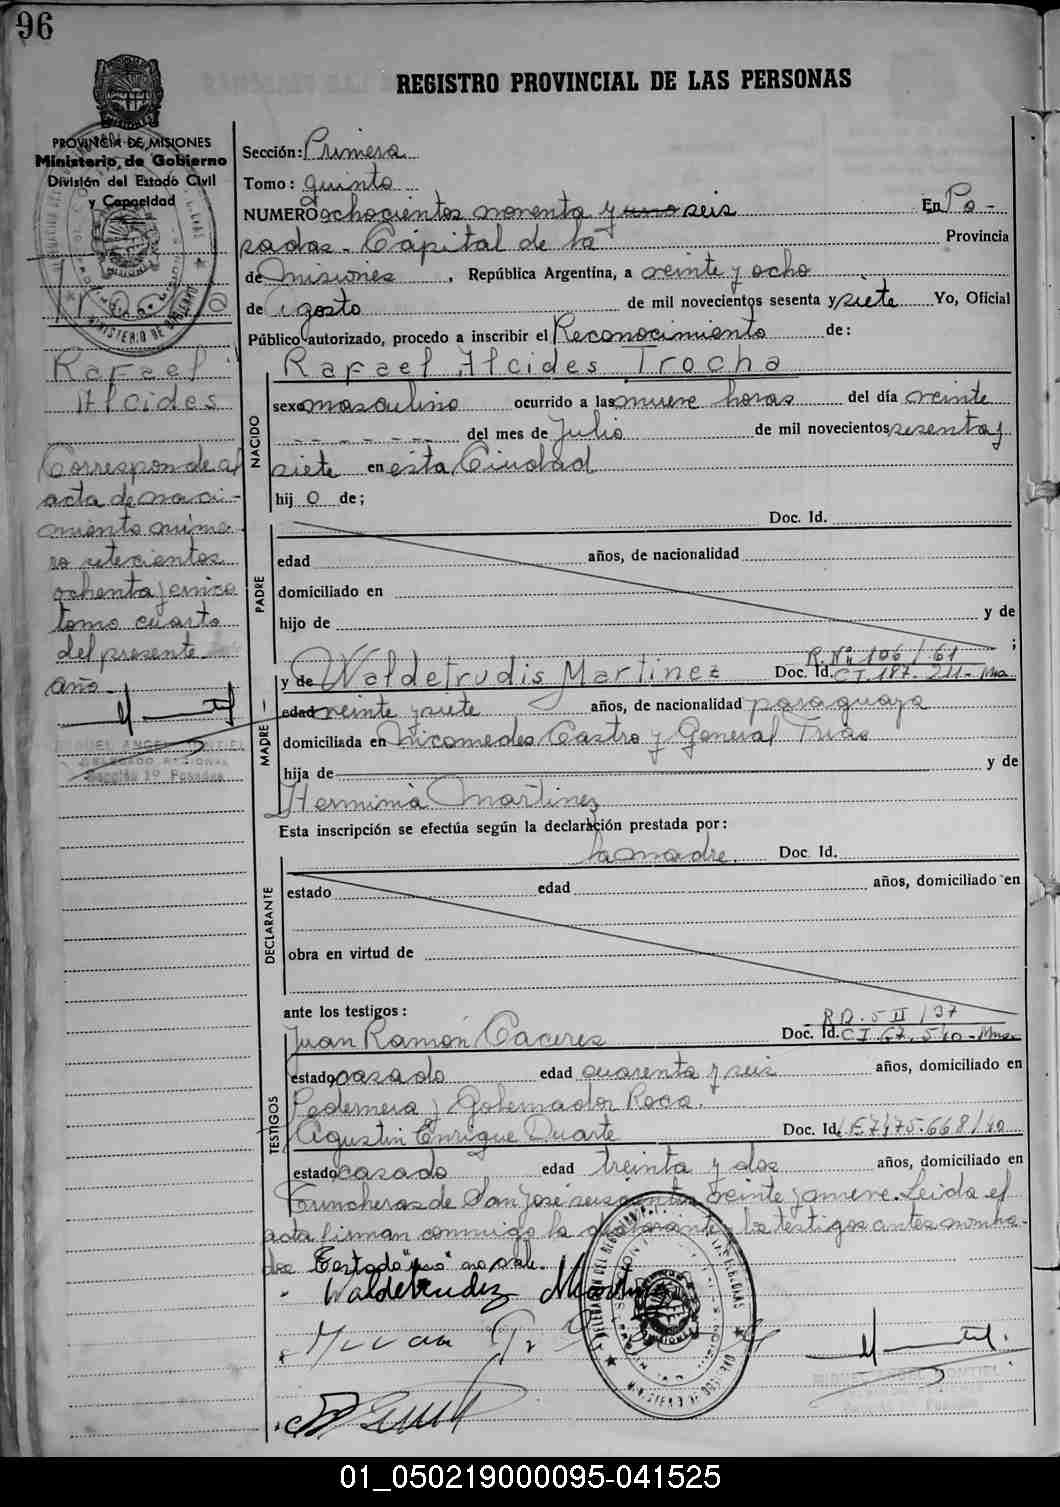 96
REGISTRO PROVINCIAL DE LAS PERSONAS
PROVINCIA DE MISIONES
Ministerio de Gobierno
División del Estado Civil
y Capacidad
Trocha
Rafael
Alcides
Corresponde al
acta de naci-
miento núme-
ro setecientos
ochenta y cinco
tomo cuarto
del presente
año.
MIGUEL ANGEL MONTIEL
DELEGADO REGIONAL
Sección 1º Posadas
Sección: Primera
Tomo: quinto
NUMERO ochocientos noventa y uno seis En Po-
sadas - Capital de la Provincia
de Misiones, República Argentina, a veinte y ocho
de Agosto de mil novecientos sesenta y siete Yo, Oficial
Público autorizado, procedo a inscribir el Reconocimiento de:
Rafael Alcides Trocha
NACIDO
sexo masculino ocurrido a las nueve horas del día veinte
del mes de Julio de mil novecientos sesenta y
siete en esta Ciudad
hij o de;
Doc. Id.
PADRE
edad años, de nacionalidad
domiciliado en
hijo de y de
;
R. Nº 106/61
y de Waldetrudis Martinez Doc. Id. C I 187.211 - Mnes
MADRE
edad veinte y siete años, de nacionalidad paraguaya
domiciliada en Nicomedes Castro y General Frias
hija de y de
Herminia Martinez
Esta inscripción se efectúa según la declaración prestada por:
la madre. Doc. Id.
DECLARANTE
estado edad años, domiciliado en
obra en virtud de
ante los testigos:
Juan Ramón Caceres Doc. Id. C I 67.540 - Mnes
TESTIGOS
estado casado edad cuarenta y seis años, domiciliado en
Pedernera y Gobernador Roca.
Agustin Enrique Duarte Doc. Id. LE 7.475.668/40
estado casado edad treinta y dos años, domiciliado en
Trincheras de San José seiscientos veinte y nueve. Leida el
acta firman conmigo la declarante y los testigos antes nombra-
dos. Testado "uno" no vale.
Waldetrudez Martinez
MIGUEL ANGEL MONTIEL
01_050219000095-041525